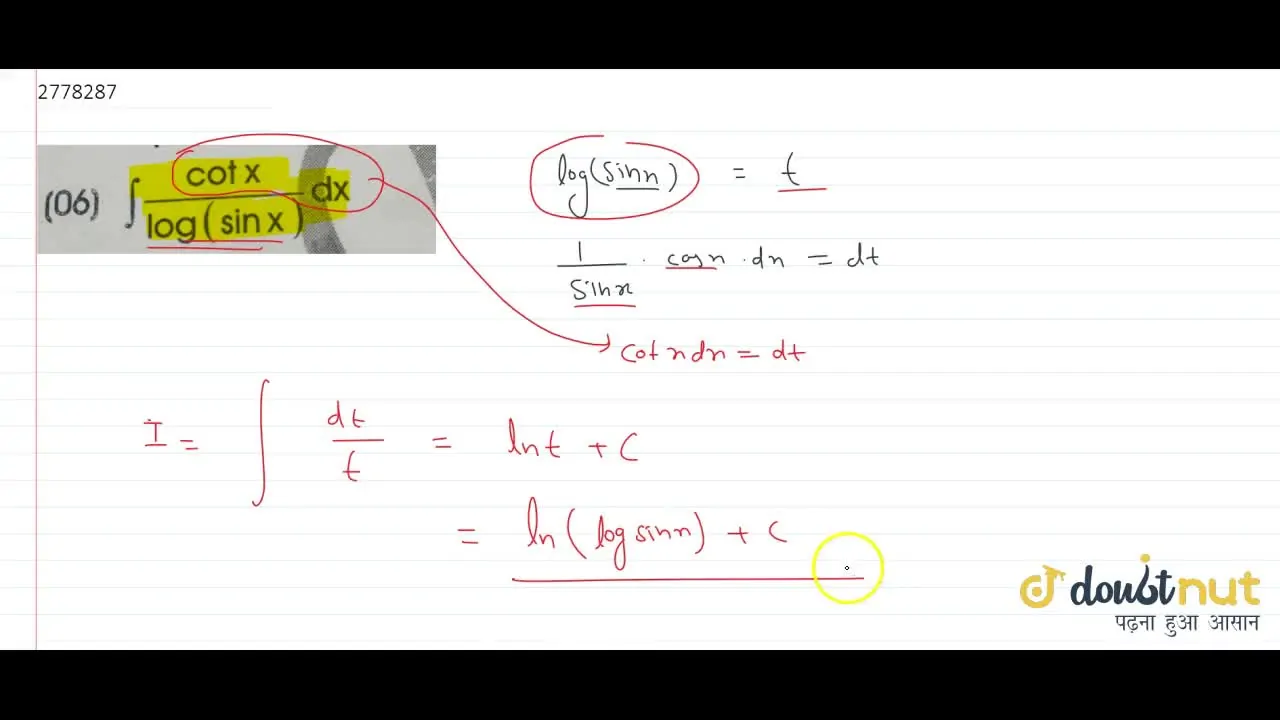 2778287
(06) ∫ cot x / log(sin x) dx
log(sinx) = t
1/sinx · cosx · dx = dt
cotxdx = dt
I = ∫ dt/t = lnt + C
= ln(logsinx) + C
doubtnut
पढ़ना हुआ आसान